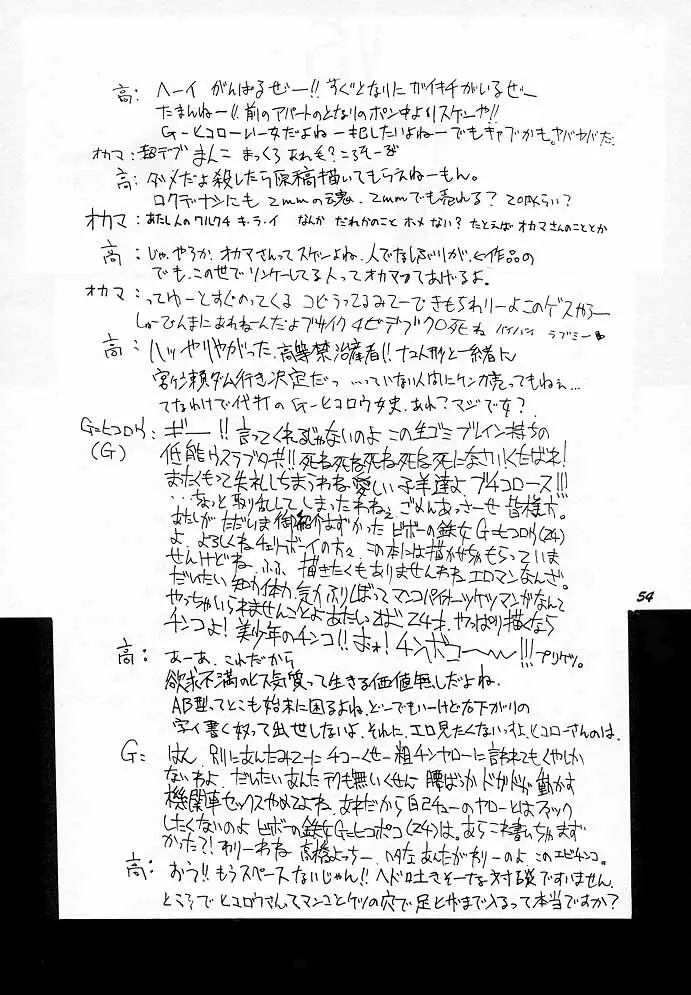 高: ヘーイ がんばるぜー!! すぐとなりに ガイキチがいるぜー
たまんねー!! 前のアパートのとなりのポン中よりスゲーや!!
G=ヒコローいー女だよねー犯したいよねーでもギャグかも。ヤバヤバだ
オカマ: 超デブ まんこ まっくろ あれも? ころそーぜ
高: ダメだよ殺したら原稿描いてもらえねーもん。
ロクデナシにも 2mmの魂、2mmでも売れる? 20円くらい?
オカマ: あたし人のワルクチ キ・ラ・イ なんか だれかのこと ホメ ない? たとえば オカマさんのこととか
高: じゃ、やろか。オカマさんってスゲーよね。人でなしぶりが。←作品の
でも、この世でソンケーしてる人ってオカマってあげるよ。
オカマ: ってゆーとすぐのってくる コビうってるみてーで きもちわりーよこのゲスやろー
しゅーひんまにあわねーんだよブサイク 4ビデブクロ死ね バイバイ ラブミー
高: ハッ やりやがった、高等禁治産者!! ナユ人形と一緒に
宮ヶ瀬ダム行き決定だっ ...っていない人間にケンカ売ってもねぇ...
てなわけで代打の G=ヒコロウ女史。あれ? マジで女?
G=ヒコロウ: ギー!! 言ってくれるじゃないのよ この生ゴミブレイン持ちの
(G) 低能ウスラブタ共!! 死ね死ね死ね死ね死になさいくたばれ!
まったくもって失礼しちまうわね、愛しい子羊達よ ブチコロース!!!
...ちょっと取り乱してしまったわねぇ、ごめんあっさーせ 皆様方。
あたしが ただいま御紹介あずかった ビボーの鉄女 G=ヒコロウ(24)
よ、よろしくねチェリーボーイの方々 この本には描かせちゃもらっていま
せんけどね、ふふ、描きたくもありませんわねエロマンなんざ。
だいたい 知力体力気力ふりしぼって マンコパイオーツケツマンがなんて
やっちゃいられませんことよ あたしゃ 24才、やっぱり描くなら
チンコよ! 美少年のチンコ!! まぉ! チンボコ〜〜〜!!! プリケツ。
高: あーあ、これだから
欲求不満のヒス気質って生きる価値無しだよね。
AB型ってとこも始末に困るよね、どーでもいーけど右下がりの
字イ書く奴って出世しないよ。それに、エロ見たくないっすよ、ヒコローさんのは。
G= はん、別にあんたみてーに チコーくせー粗チンヤローに言われてもくやしか
ないわよ だいたいあんた テクも無いくせに 腰ばっかドカドカ動かす
機関車セックスやめてよね、あれだから自己チューのヤローとはファック
したくないのよ ビボーの鉄女G=ヒコポコ(24)は。あらこれ書いちゃまず
かった?! わりーわね 高橋よっちー、 あんたがわりーのよ、このエビチンコ。
高: おう!! もうスペースないじゃん!! ヘドロ吐きそーな対談ですいません。
ところで ヒコロウさんってマンコとケツの穴で 足とかまで入るって本当ですか?
54